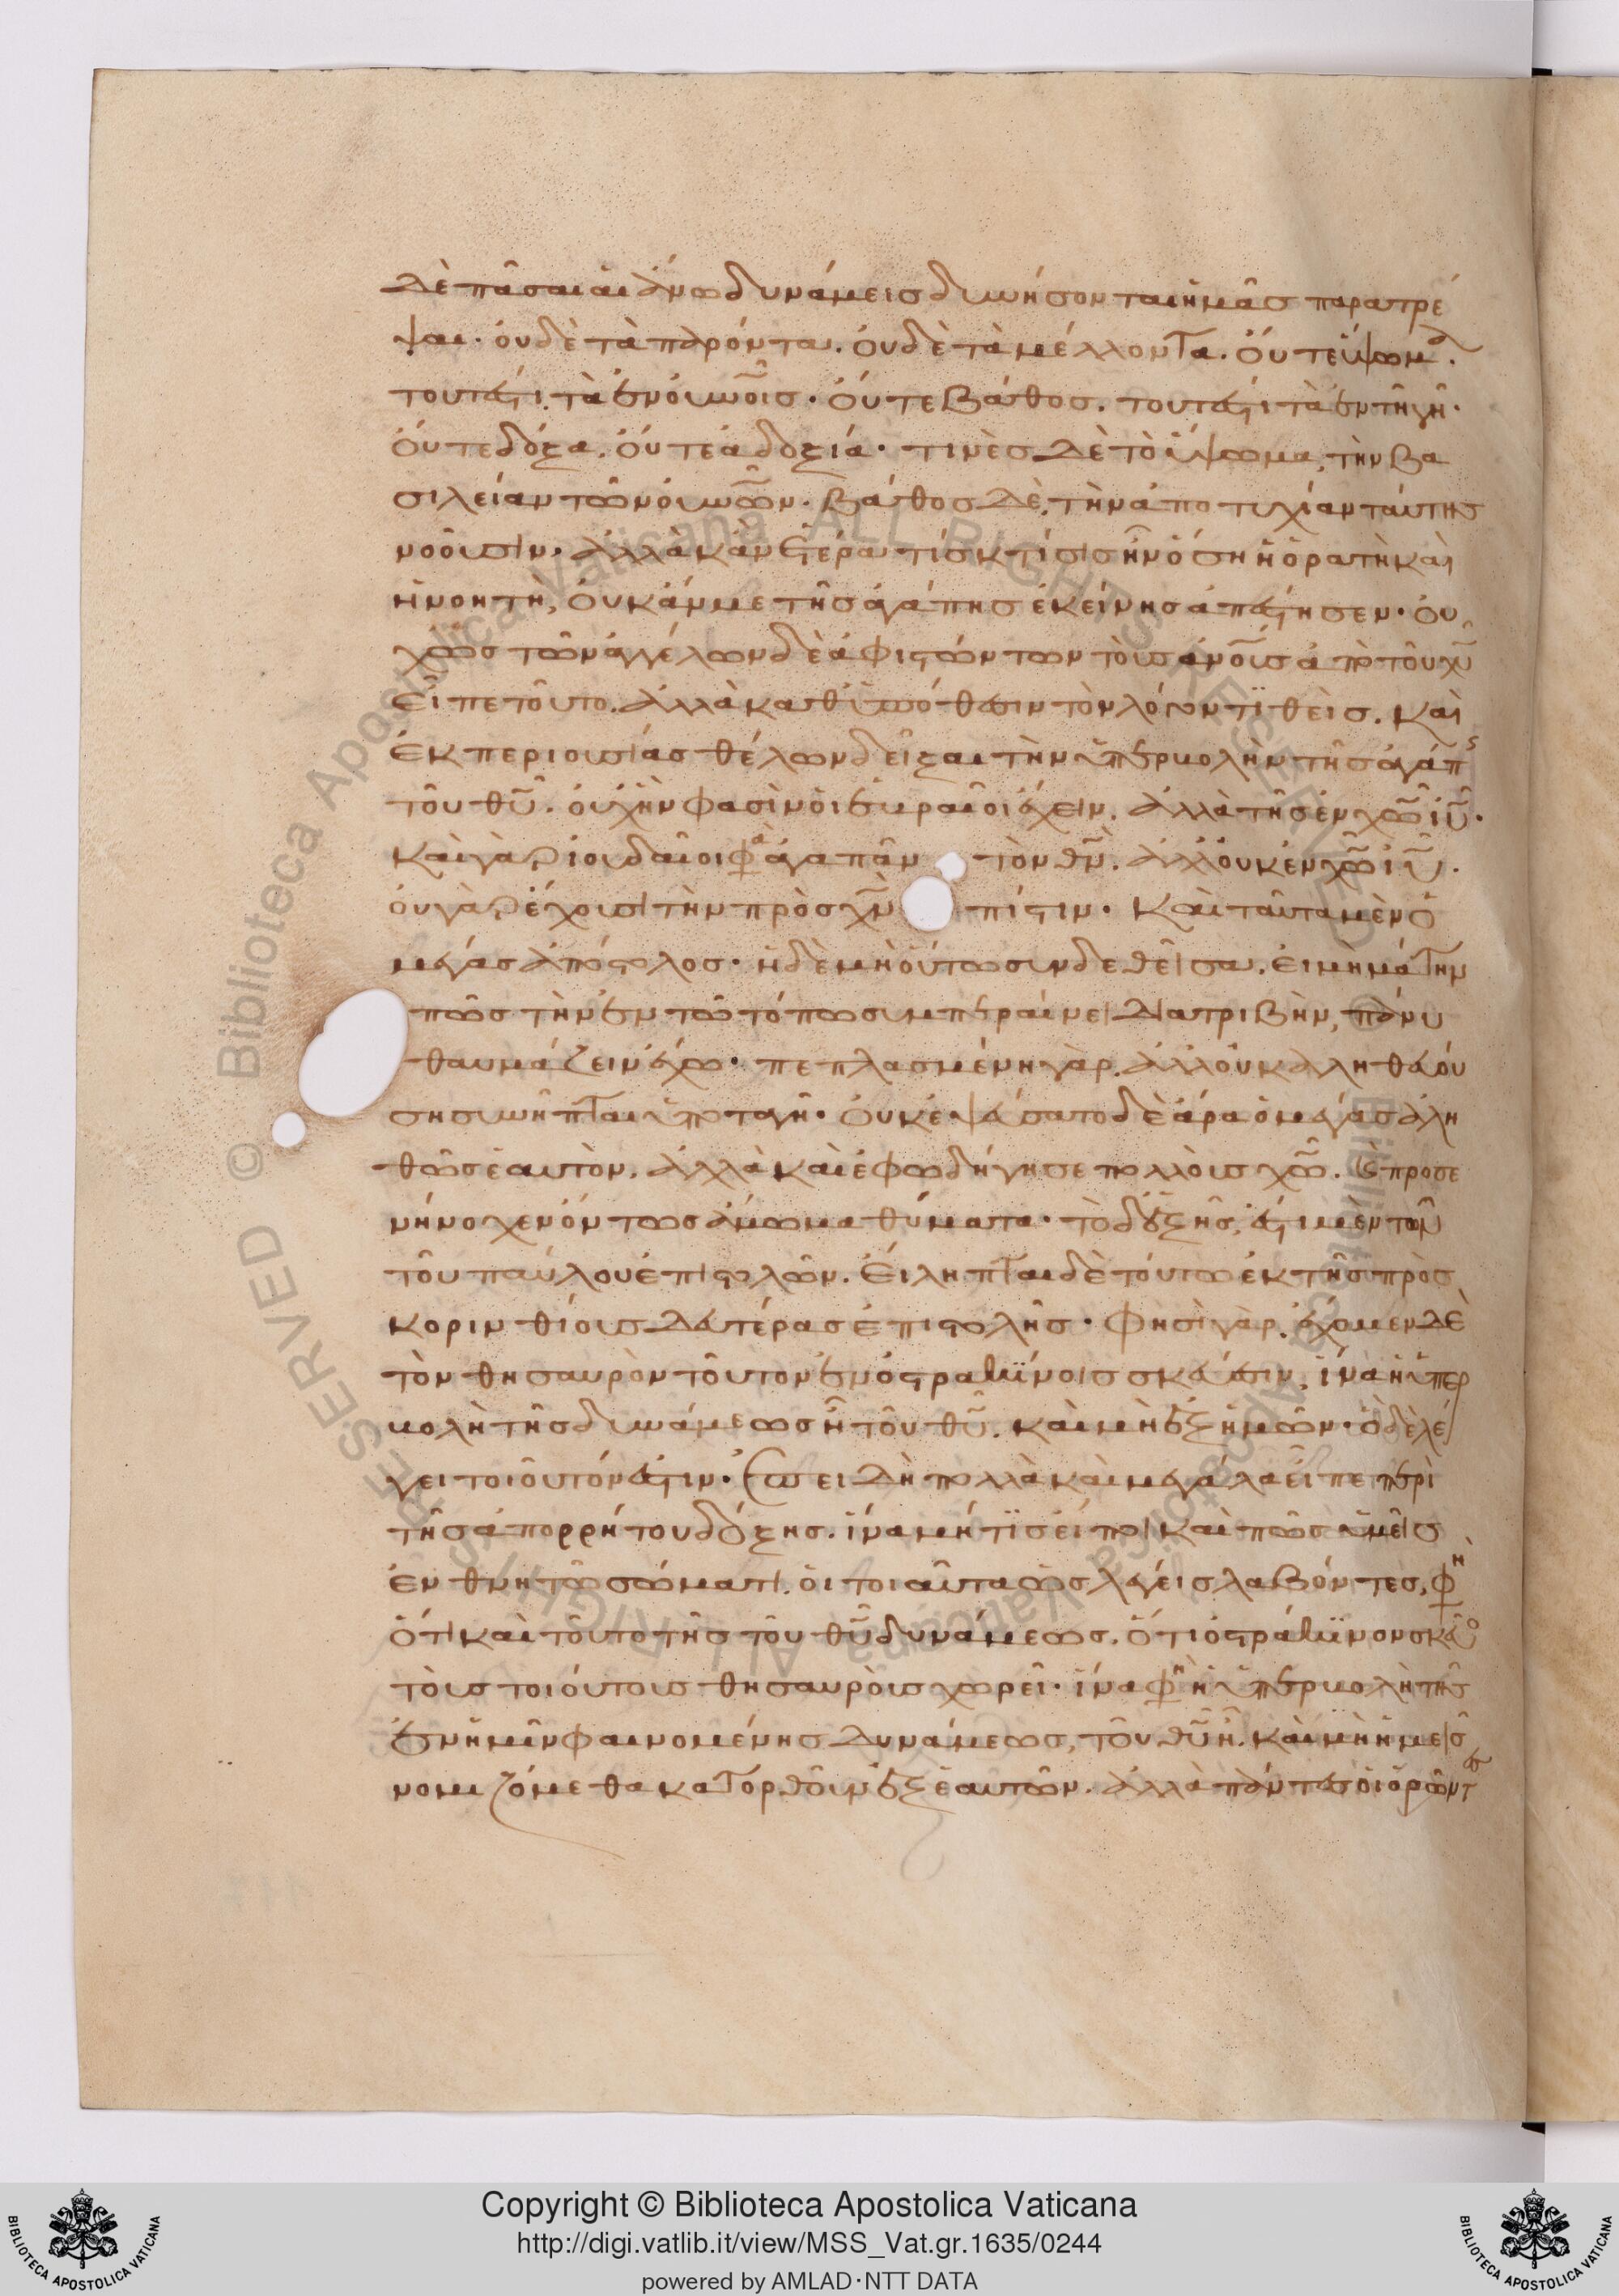 δὲ πᾶσαι αἱ ἄνω δυνάμεις δυνήσονται ἡμᾶς παρατρέ
ψαι· οὐδὲ τὰ παρόντα. οὐδὲ τὰ μέλλοντα. οὔτε ὕψωμα.
τουτέστι τὰ ἐν οὐνοῖς· οὔτε βάθος. τουτέστι τὰ ἐν τῇ γῇ·
οὔτε δόξα. οὔτε ἀδοξία· τινὲς δὲ τὸ ὕψωμα, τὴν βα
σιλείαν τῶν οὐνῶν· βάθος δὲ, τὴν ἀποτυχίαν ταύτης
νοοῦσιν· ἀλλὰ κἂν ἑτέρα τίς κτίσις ἦν ὅση ἡ ὁρατὴ καὶ
ἡ νοητὴ, οὐκ ἄν με τῆς ἀγάπης ἐκείνης ἀπέστησεν· οὐ
χ ὡς τῶν ἀγγέλων δὲ ἀφιστώντων τοὺς ἀνους ἀπὸ τοῦ χυ
εἶπε τοῦτο. ἀλλὰ καθ ὑπόθεσιν τὸν λόγον τιθεὶς. καὶ
ἐκ περιουσίας θέλων δεῖξαι τὴν ὑπερβολὴν τῆς ἀγάπης
τοῦ θυ. οὐχ ἣν φασὶν οἱ ἑβραῖοι ἔχειν. ἀλλὰ τῆς ἐν χω ιυ.
καὶ γὰρ ἰουδαῖοι φα ἀγαπᾶν τὸν θν. ἀλλ οὐκ ἐν χω ιυ.
οὐ γὰρ ἔχουσι τὴν πρὸς χν πίστιν· καὶ ταῦτα μὲν ὁ
μέγας ἀπόστολος· ἡ δὲ μὴ οὕτω συνδεθεῖσα. εἰ μὴ μάτην
πῶς τὴν ἐν τῶ τόπω συμπεραίνει διατριβὴν, πάνυ
θαυμάζειν ἔχω· πεπλασμένη γὰρ. ἀλλ οὐκ ἀληθεύου
ση σιωπῇ
θῶς ἑαυτὸν. ἀλλὰ καὶ ἐφωδήγησε πολλοὺς χω. καὶ προσε
νήνοχεν ὄντως ἄμωμα θύματα· τὸ δ ἑξῆς, ἔστι μὲν τῶν
τοῦ παύλου ἐπιστολῶν. εἴληπται δὲ τούτω ἐκ τῆς πρὸς
κορινθίους δευτέρας ἐπιστολῆς· φησὶ γὰρ. ἔχομεν δὲ
τὸν θησαυρὸν τοῦτον ἐν ὀστρακίνοις σκεύεσιν, ἵνα ἡ ὑπερ
βολὴ τῆς δυνάμεως ἦ τοῦ θυ. καὶ μὴ ἐξ ἡμῶν· ὃ δὲ λέ
γει τοιοῦτόν ἐστιν· ἐπειδὴ πολλὰ καὶ μεγάλα εἶπε περὶ
τῆς ἀπορρήτου δόξης. ἵνα μή τις εἴποι καὶ πῶς ὑμεῖς
ἐν θνητῶ σώματι. οἱ τοιαῦτα ὡς λέγεις λαβόντες, φη
ὅτι καὶ τοῦτο τῆς τοῦ θυ δυνάμεως. ὅτι ὀστράκινον σκεῦος
τοὺς τοιούτους θησαυροὺς χωρεῖ· ἵνα φη ἡ ὑπερβολὴ τῆς
ἐν ἡμῖν φαινομένης δυνάμεως, τοῦ θυ ἦ. καὶ μὴ ἡμεῖς
νομιζόμεθα κατορθοῦν ἐξ ἑαυτῶν. ἀλλὰ πάντες οἱ ὁρῶντες
Copyright © Biblioteca Apostolica Vaticana
http://digi.vatlib.it/view/MSS_Vat.gr.1635/0244
powered by AMLAD·NTT DATA
BIBLIOTECA APOSTOLICA VATICANA
BIBLIOTECA APOSTOLICA VATICANA